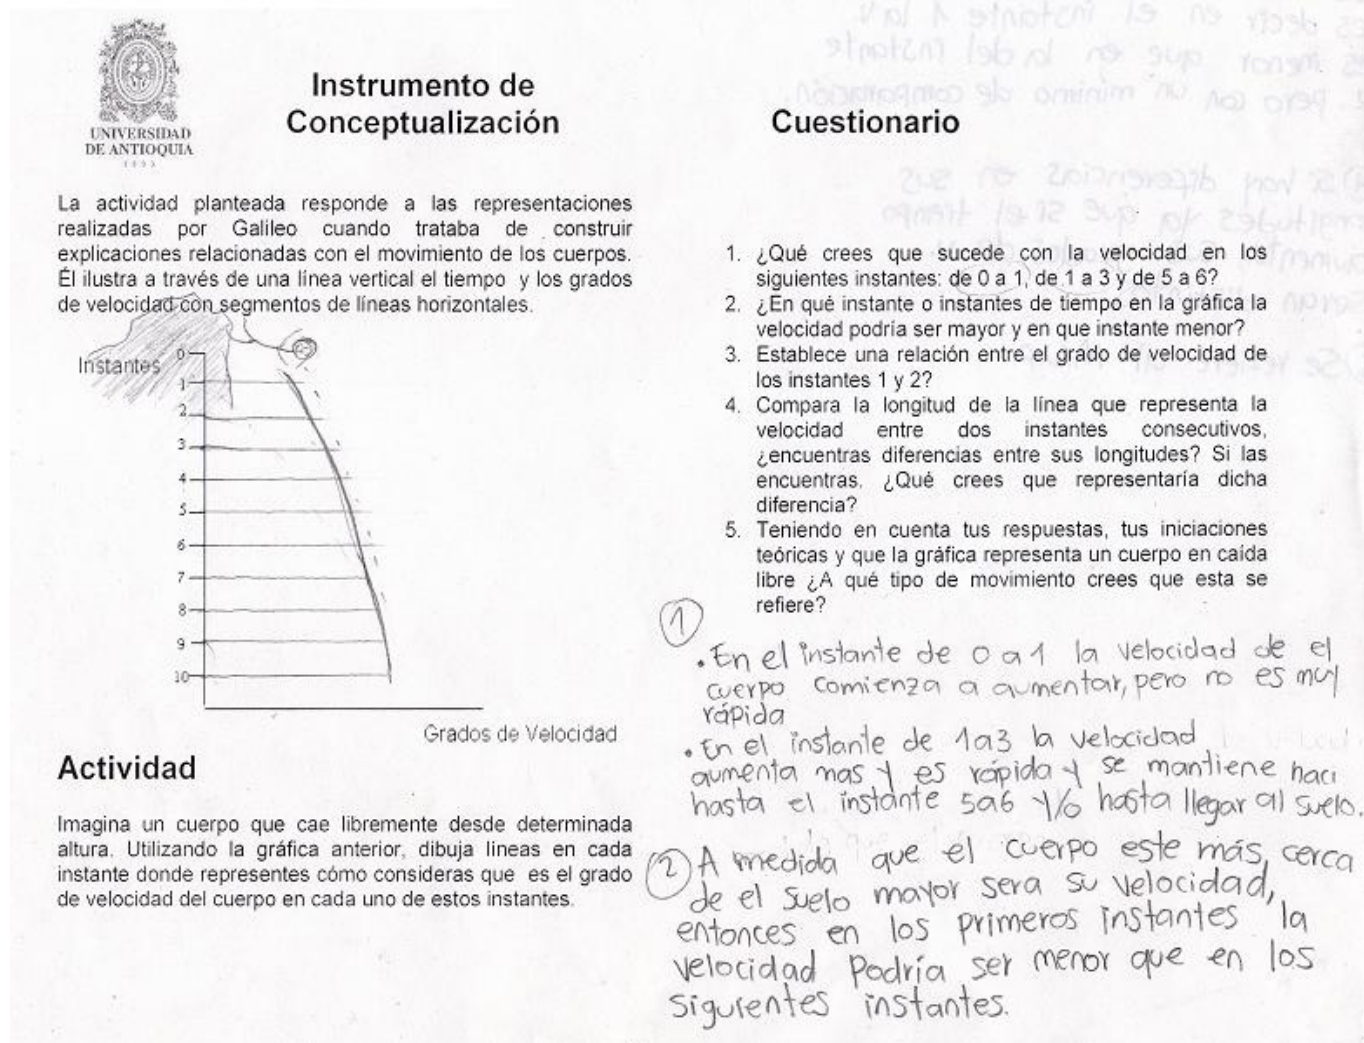 UNIVERSIDAD
DE ANTIOQUIA
1803
Instrumento de
Conceptualización
La actividad planteada responde a las representaciones
realizadas por Galileo cuando trataba de construir
explicaciones relacionadas con el movimiento de los cuerpos.
Él ilustra a través de una línea vertical el tiempo y los grados
de velocidad con segmentos de líneas horizontales.
Instantes
0
1
2
3
4
5
6
7
8
9
10
Grados de Velocidad
Actividad
Imagina un cuerpo que cae libremente desde determinada
altura. Utilizando la gráfica anterior, dibuja lineas en cada
instante donde representes cómo consideras que es el grado
de velocidad del cuerpo en cada uno de estos instantes.
Cuestionario
1. ¿Qué crees que sucede con la velocidad en los
siguientes instantes: de 0 a 1, de 1 a 3 y de 5 a 6?
2. ¿En qué instante o instantes de tiempo en la gráfica la
velocidad podría ser mayor y en que instante menor?
3. Establece una relación entre el grado de velocidad de
los instantes 1 y 2?
4. Compara la longitud de la línea que representa la
velocidad entre dos instantes consecutivos,
¿encuentras diferencias entre sus longitudes? Si las
encuentras. ¿Qué crees que representaría dicha
diferencia?
5. Teniendo en cuenta tus respuestas, tus iniciaciones
teóricas y que la gráfica representa un cuerpo en caída
libre ¿A qué tipo de movimiento crees que esta se
refiere?
1
• En el instante de 0 a 1 la velocidad de el
cuerpo comienza a aumentar, pero no es muy
rápida
• En el instante de 1a3 la velocidad
aumenta mas y es rápida y se mantiene haci
hasta el instante 5a6 y/o hasta llegar al suelo.
2 A medida que el cuerpo este más cerca
de el suelo mayor sera su velocidad,
entonces en los primeros instantes la
velocidad Podría ser menor que en los
siguientes instantes.